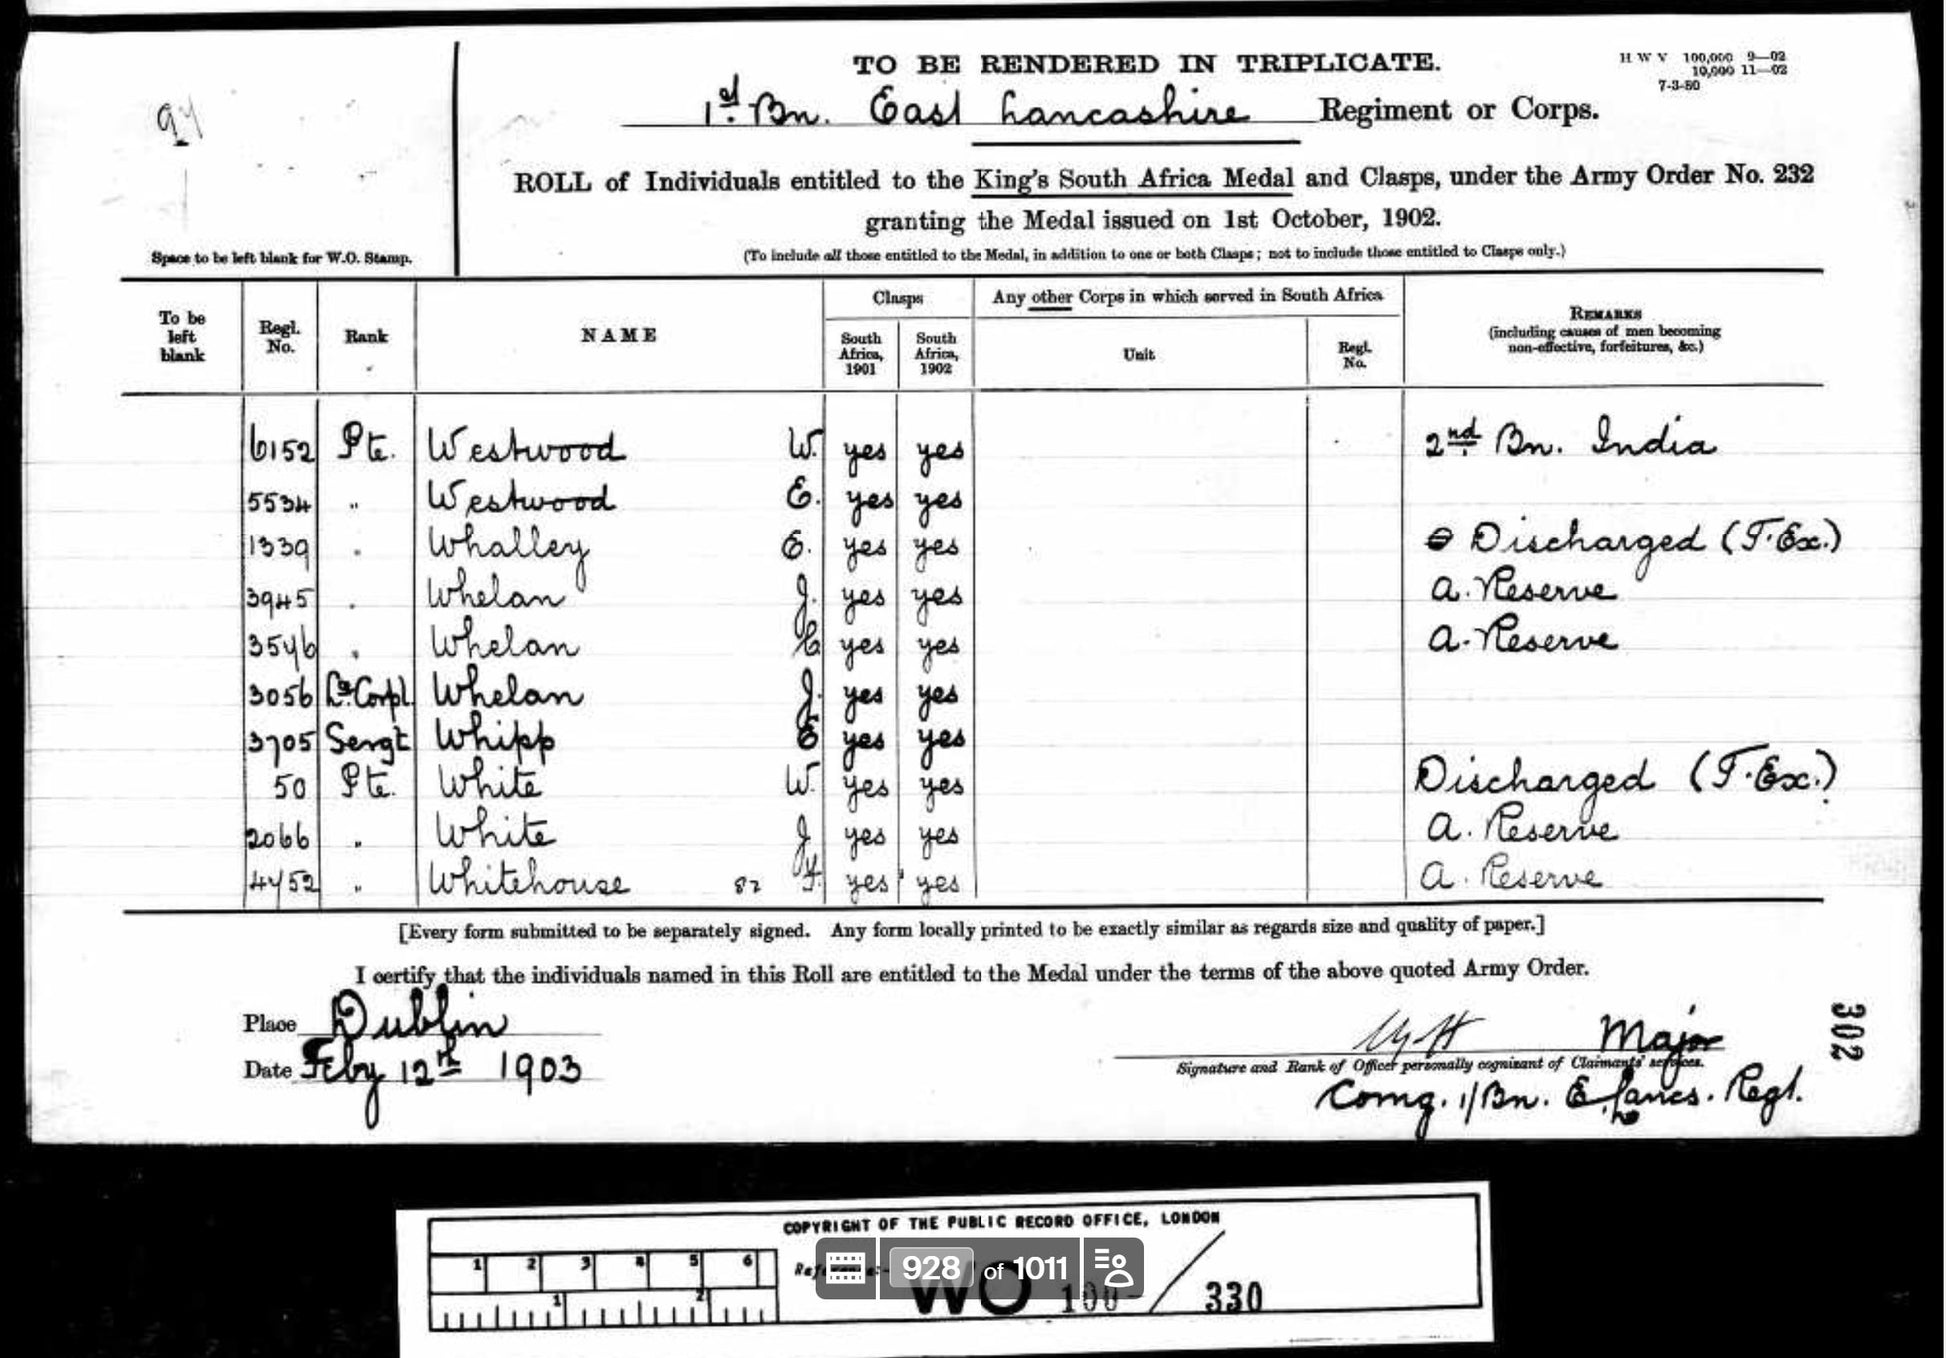 TO BE RENDERED IN TRIPLICATE.
H W V 100,000 9—02
10,000 11—02
7-3-50
94
1st Bn. East Lancashire Regiment or Corps.
ROLL of Individuals entitled to the King's South Africa Medal and Clasps, under the Army Order No. 232
granting the Medal issued on 1st October, 1902.
Space to be left blank for W.O. Stamp.
(To include all those entitled to the Medal, in addition to one or both Clasps; not to include those entitled to Clasps only.)
To be left blank Regl. No. Rank NAME Clasps South Africa, 1901 South Africa, 1902 Any other Corps in which served in South Africa Unit Regl. No. REMARKS (including causes of men becoming non-effective, forfeitures, &c.)
6152 Pte. Westwood W. yes yes 2nd Bn. India
5534 " Westwood E. yes yes
1339 " Whalley E. yes yes Discharged (T.Ex.)
3945 " Whelan J. yes yes A. Reserve
3546 " Whelan C yes yes A. Reserve
3056 Lce Corpl Whelan J. yes yes
3705 Sergt Whipp E yes yes
50 Pte. White W. yes yes Discharged (T.Ex.)
2066 " White J yes yes A. Reserve
4452 " Whitehouse 82 F. yes yes A. Reserve
[Every form submitted to be separately signed. Any form locally printed to be exactly similar as regards size and quality of paper.]
I certify that the individuals named in this Roll are entitled to the Medal under the terms of the above quoted Army Order.
Place Dublin
Date Feby 12th 1903
Major
Signature and Rank of Officer personally cognizant of Claimants' services.
Comg. 1/Bn. E. Lancs. Regt.
302
COPYRIGHT OF THE PUBLIC RECORD OFFICE, LONDON
1 2 3 4 5 6
Reference:-
928 of 1011
1 2
WO 100 / 330